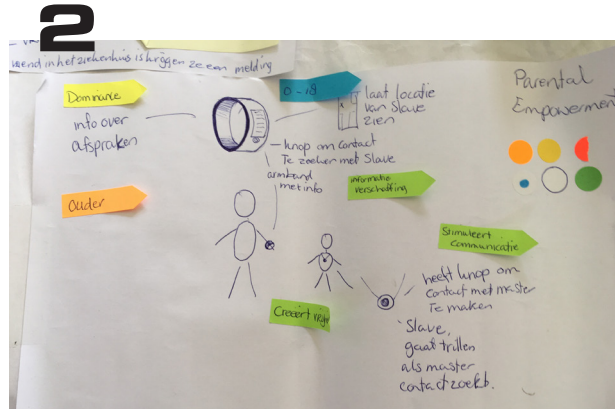 2
vriend in het ziekenhuis is krijgen ze een melding
Dominante
info over
afspraken
0-18
laat locatie
van Slave
zien
Parental
Empowerment
knop om contact
Te zoeken met Slave
armband
met info
informatie
verschaffing
Ouder
Stimuleert
Communicatie
heeft knop om
contact met master
Te maken
Creëert
Slave,
gaat trillen
als master
contact zoekt.